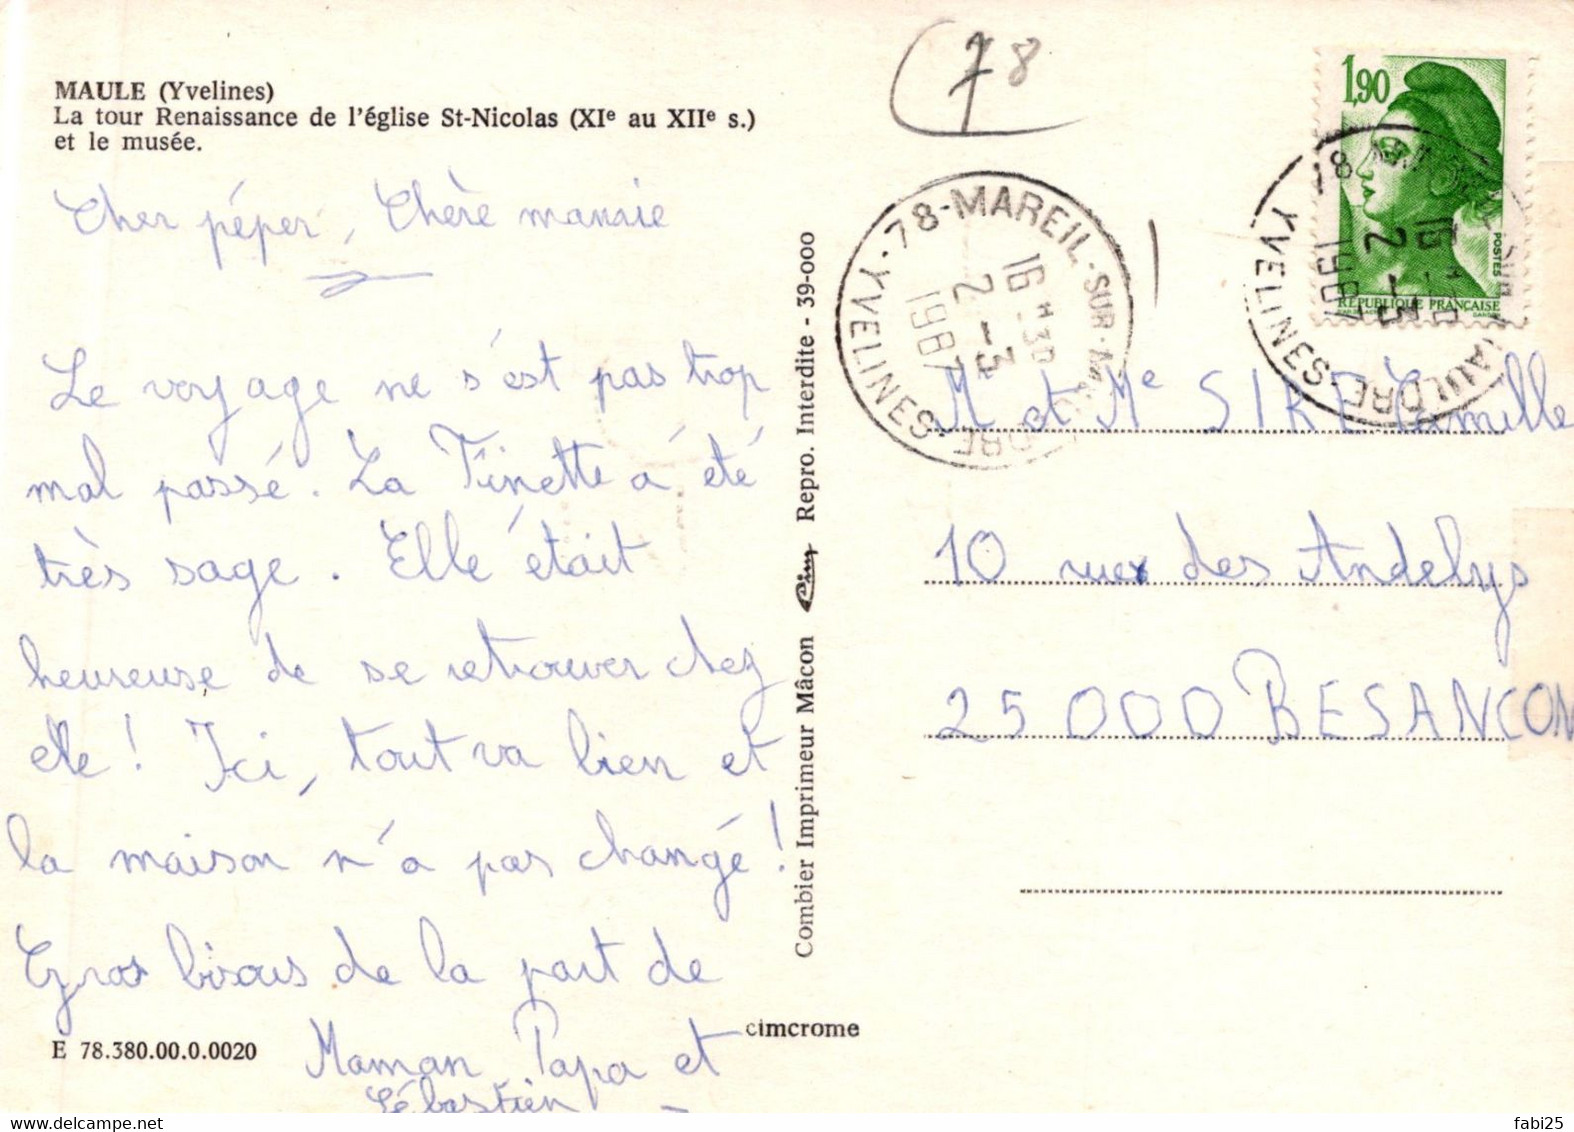 MAULE (Yvelines)
La tour Renaissance de l'église St-Nicolas (XIe au XIIe s.)
et le musée.
Cher péper, Chère mamie
Le voyage ne s'est pas trop
mal passé. La Finette á été
très sage. Elle était
heureuse de se retrouver chez
elle! Ici, tout va bien et
la maison n'a pas changé!
Gros bisous de la part de
Maman Papa et
Sébastien
E 78.380.00.0.0020
cimcrome
Combier Imprimeur Mâcon Cim Repro. Interdite - 39-000
78
78-MAREIL-SUR-MAULDRE
YVELINES
16 H 30
2 - 3
1987
1,90
POSTES
RÉPUBLIQUE FRANÇAISE
YVELINES
2 - 3
1987
M et Me SIRE Camille
10 rue des Andelys
25000 BESANCON
delcampe.net
fabi25